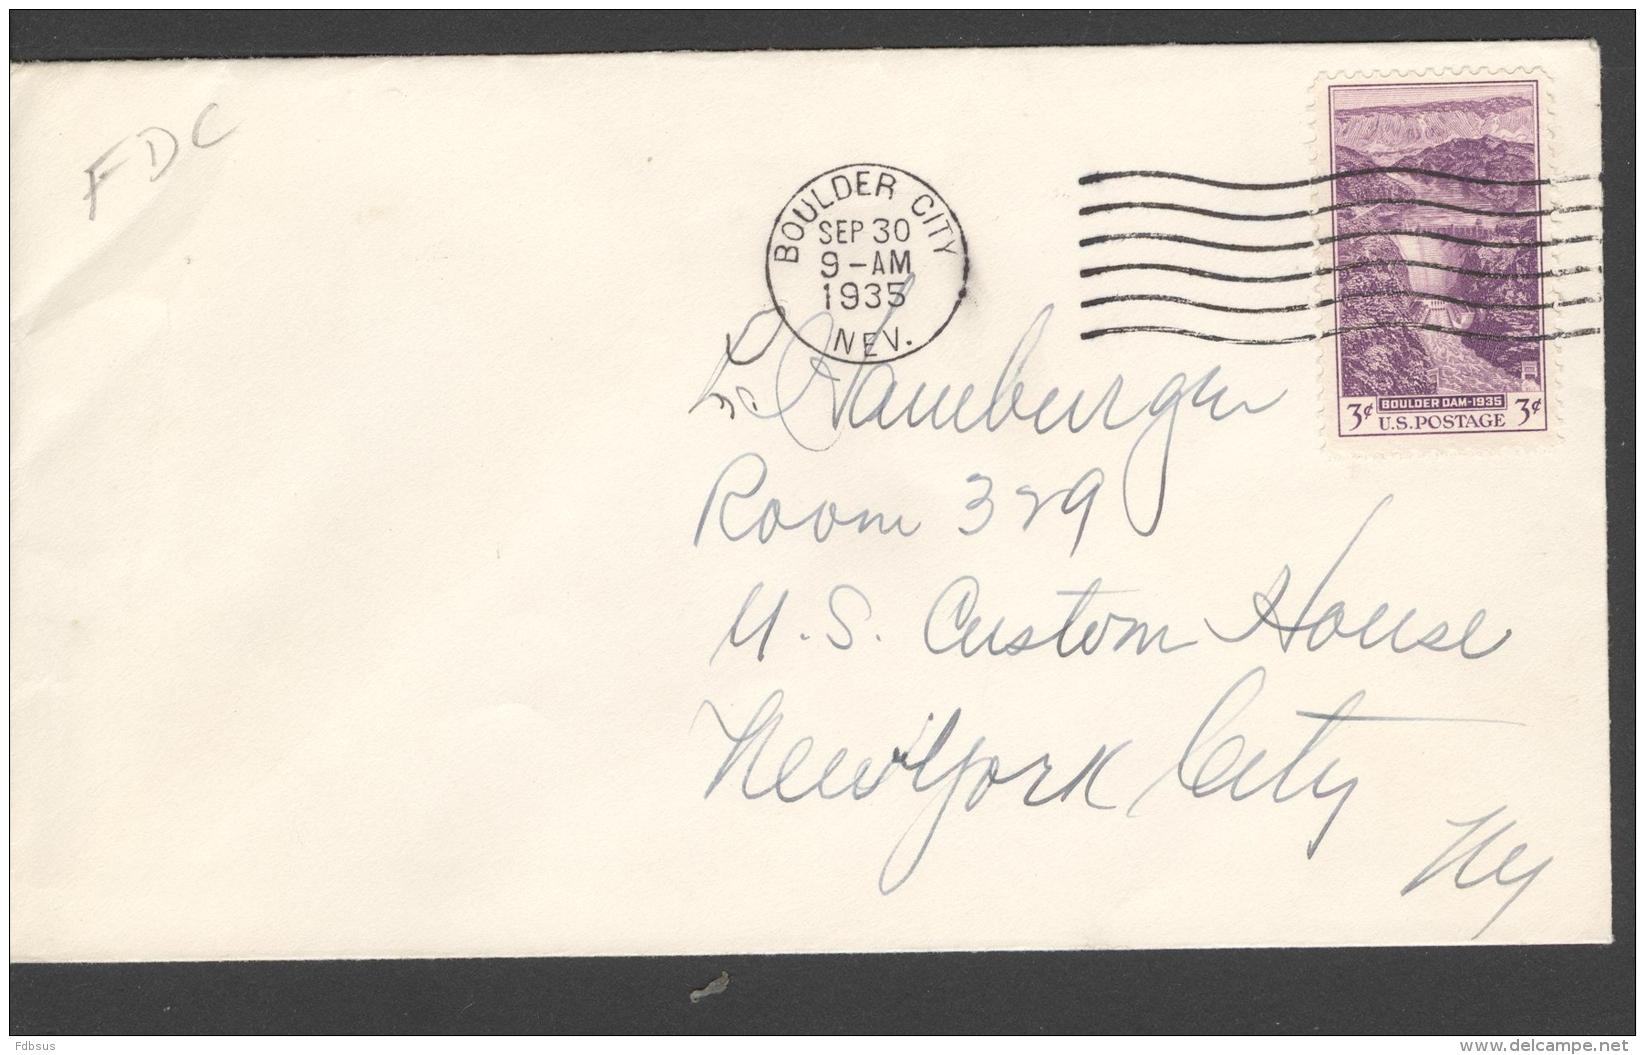 FDC
BOULDER CITY
SEP 30
9-AM
1935
NEV.
BOULDER DAM-1935
3¢ U.S. POSTAGE 3¢
Hamburger
Room 329
U.S. Custom House
New York City
NY
Fdbsus
www.delcampe.net